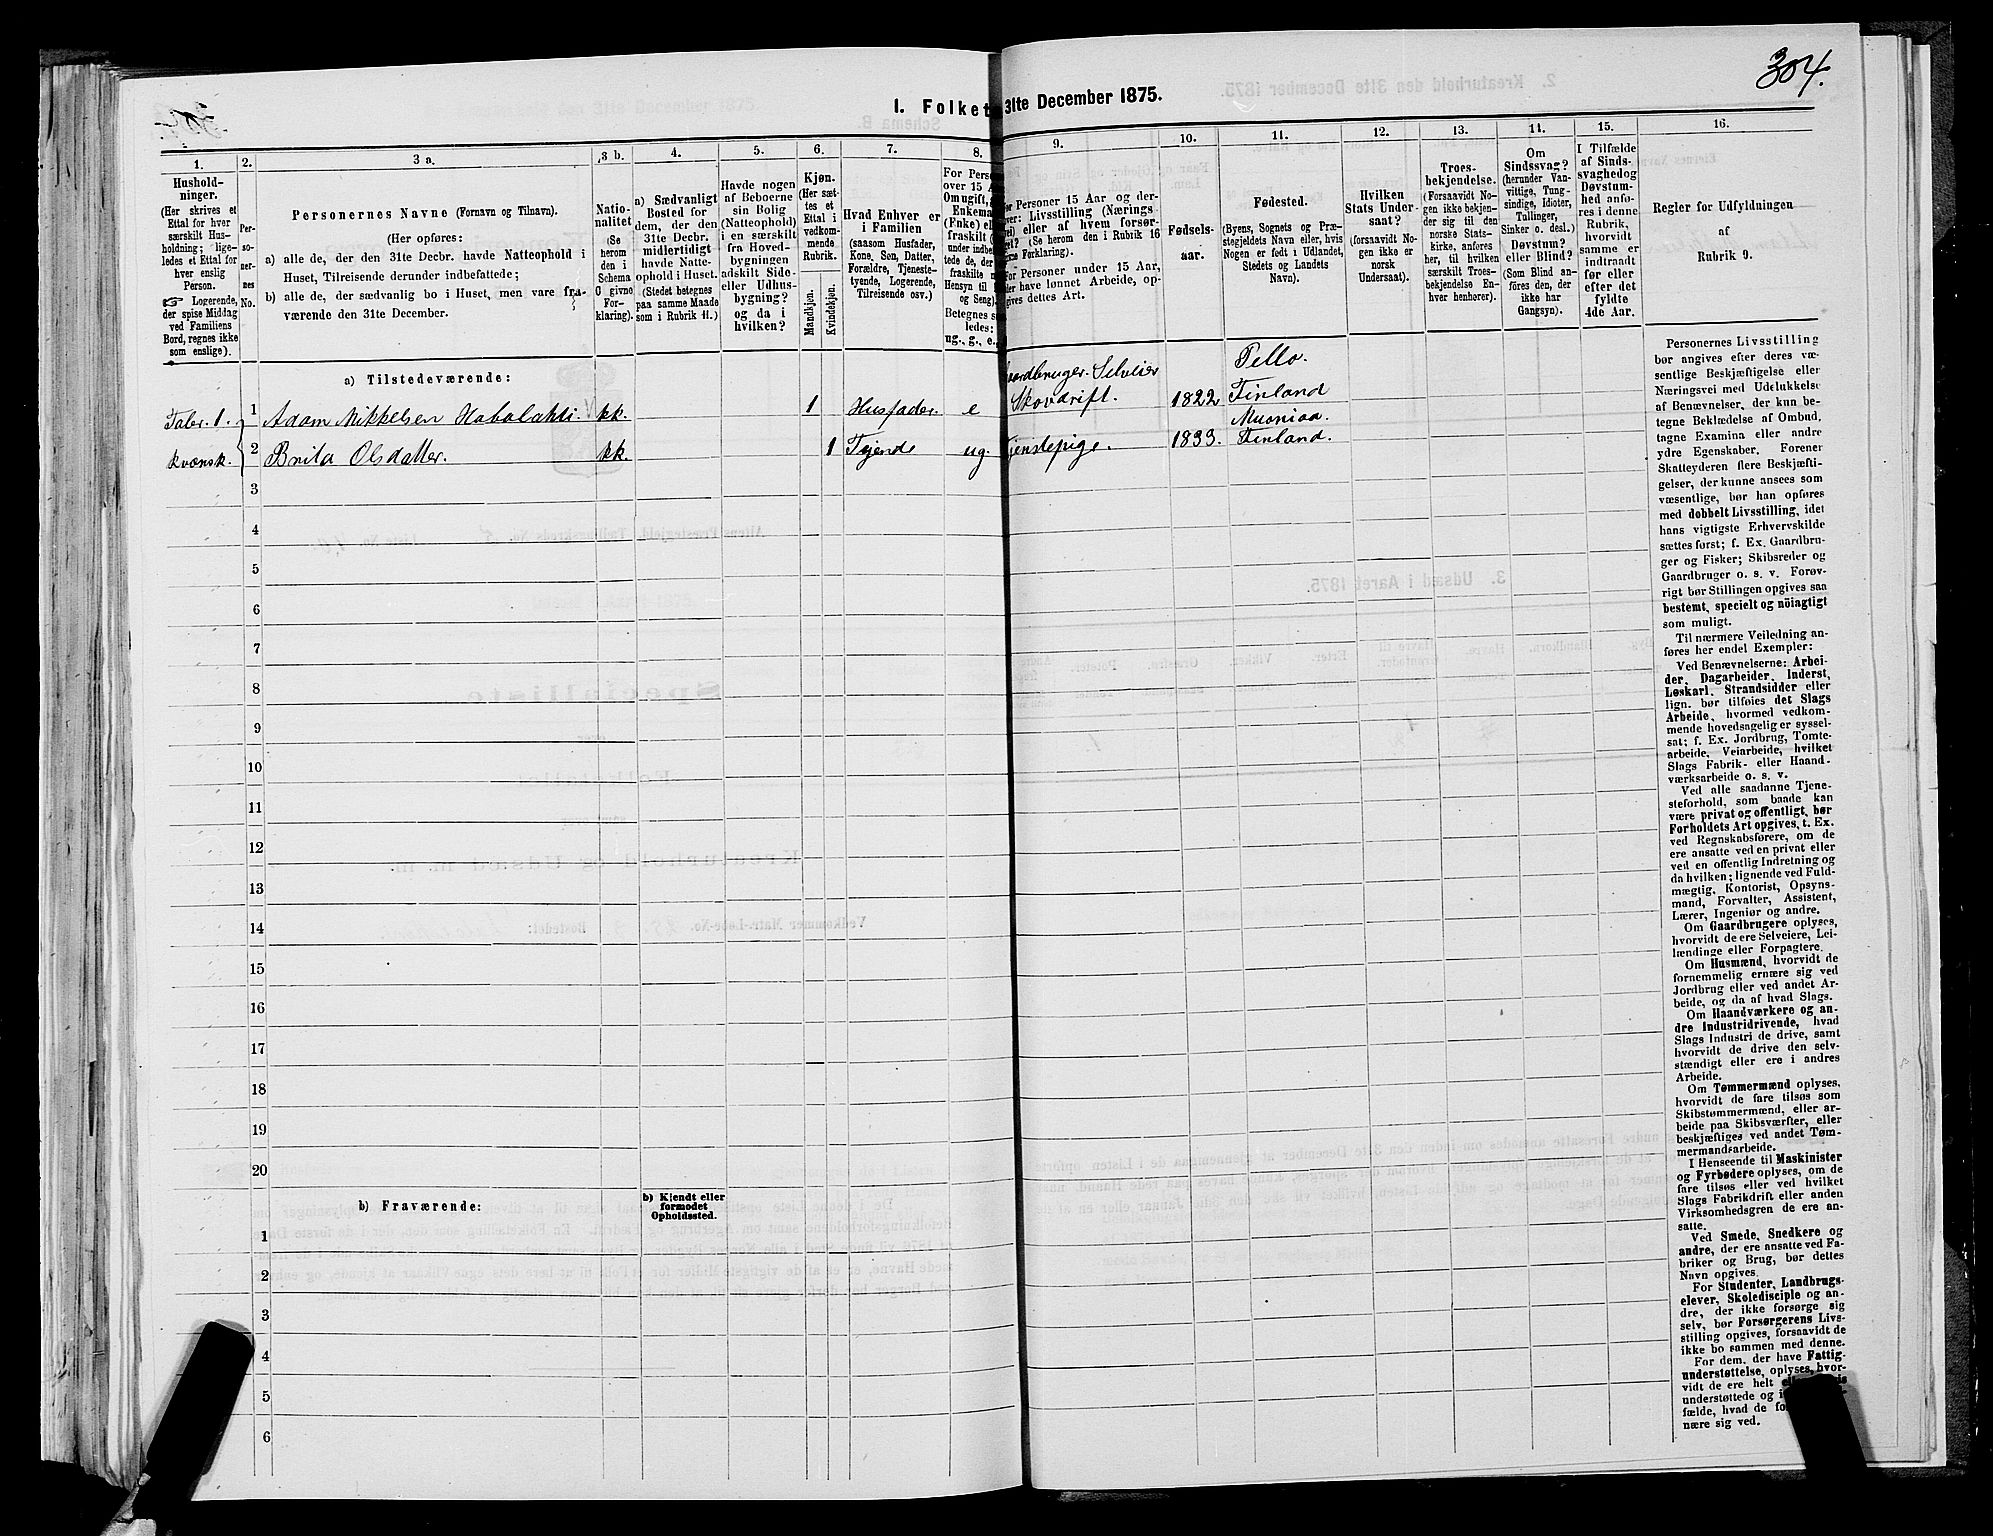 304.
I. Folket
31te December 1875.
1.
2.
3 a.
3 b.
4.
5.
6.
7.
8.
9.
10.
11.
12.
13.
14.
15.
16.
Hushold-
ninger.
(Her skrives et
Ettal for hver
særskilt Hus-
holdning; lige-
ledes et Ettal for
hver enslig
Person.
☞ Logerende,
der spise Middag
ved Familiens
Bord, regnes ikke
som enslige).
Per-
so-
ner-
nes
No.
Personernes Navne (Fornavn og Tilnavn).
(Her opføres:
a) alle de, der den 31te Decbr. havde Natteophold i
Huset, Tilreisende derunder indbefattede;
b) alle de, der sædvanlig bo i Huset, men vare fra-
værende den 31te December.
Natio-
nalitet
(Se
herom
den i
Schema
O givne
For-
klaring).
a) Sædvanligt
Bosted for
dem, der den
31te Decbr.
midlertidigt
havde Natte-
ophold i Huset.
(Stedet betegnes
paa samme Maade
som i Rubrik 11.)
Havde nogen
af Beboerne
sin Bolig
(Natteophold)
i en særskilt
fra Hoved-
bygningen
adskilt Side-
eller Udhus-
bygning?
og da i
hvilken?
Kjøn.
(Her sæt-
tes et
Ettal i
vedkom-
mende
Rubrik.
Mandkjøn.
Kvindekjøn.
Hvad Enhver er
i Familien
(saasom Husfader,
Kone, Søn, Datter,
Forældre, Tjeneste-
tyende, Logerende,
Tilreisende osv.)
For Perso
over 15 A
Om ugift,
Enkema
(Fnke) e
fraskilt
under indbe-
tede de,
fraskilte
Hensyn til
og Seng).
Betegnes s
ledes:
ug., g., e.,
For Personer 15 Aar og der-
over: Livsstilling (Nærings-
vei) eller af hvem forsør-
get? (Se herom den i Rubrik 16
givne Førklaring).
For Personer under 15 Aar,
der have lønnet Arbeide, op-
gives dettes Art.
Fødsels-
aar.
Fødested.
(Byens, Sognets og Præ-
stegjeldets Navn eller, hvis
Nogen er født i Udlandet,
Stedets og Landets
Navn).
Hvilken
Stats Under-
saat?
(forsaavidt No-
gen ikke er
norsk
Undersaat).
Troes-
bekjendelse.
(Forsaavidt No-
gen ikke bekjen-
der sig til den
norske Stats-
kirke, anføres
her, til hvilken
særskilt Troes-
bekjendelse En-
hver henhører).
Om
Sindssvag?
(herunder Van-
vittige, Tung-
sindige, Idioter,
Tullinger,
Sinker o. desl.)
Døvstum?
eller Blind?
(Som Blind an-
føres den, der
ikke har
Gangsyn).
I Tilfælde
af Sinds-
svaghedog
Døvstum-
hed anfø-
res i denne
Rubrik,
hvorvidt
samme er
indtraadt
før eller
efter det
fyldte
4de Aar.
Regler for Udfyldningen
af
Rubrik 9.
a) Tilstedeværende:
Taler 1. 1 Adam Mikkelsen Habalahti. kk. 1 Husfader. e
Gaardbruger. Selveier
Skovdrift. 1822 Pello.
Finland
kvænsk. 2 Brita Olsdatter. kk. 1 Tjende ug. Tjenstepige. 1833. Muoniaa.
Finland.
3
4
5
6
7
8
9
10
11
12
13
14
15
16
17
18
19
20
b) Fraværende:
b) Kjendt eller
formodet
Opholdssted.
1
2
3
4
5
6
Personernes Livsstilling
bør angives efter deres væ-
sentlige Beskjæftigelse eller
Næringsvei med Udelukkelse
af Benævnelser, der kun be-
tegne Beklædelse af Ombud,
tagne Examina eller andre
ydre Egenskaber. Forener
Skatteyderen flere Beskjæfti-
gelser, der kunne ansees som
væsentlige, bør han opføres
med dobbelt Livsstilling, idet
hans vigtigste Erhvervskilde
sættes først; f. Ex. Gaardbru-
ger og Fisker; Skibsreder og
Gaardbruger o. s. v. Forøv-
rigt bør Stillingen opgives saa
bestemt, specielt og nöiagtigt
som muligt.
Til nærmere Veiledning an-
føres her endel Exempler:
Ved Benævnelserne: Arbei-
der, Dagarbeider, Inderst,
Løskarl, Strandsidder eller
lign. bør tilføies det Slags
Arbeide, hvormed vedkom-
mende hovedsagelig er syssel-
sat; f. Ex. Jordbrug, Tomte-
arbeide, Veiarbeide, hvilket
Slags Fabrik- eller Haand-
værksarbeide o. s. v.
Ved alle saadanne Tjene-
steforhold, som baade kan
være privat og offentligt, bør
Forholdets Art opgives, t. Ex.
ved Regnskabsførere, om de
ere ansatte ved en privat eller
ved en offentlig Indretning og
da hvilken; lignende ved Fuld-
mægtig, Kontorist, Opsyns-
mand, Forvalter, Assistent,
Lærer, Ingeniør og andre.
Om Gaardbrugere oplyses,
hvorvidt de ere Selveiere, Lei-
lændinge eller Forpagtere.
Om Husmænd, hvorvidt de
fornemmelig ernære sig ved
Jordbrug eller ved andet Ar-
beide, og da af hvad Slags.
Om Haandværkere og an-
dre Industridrivende, hvad
Slags Industri de drive, samt
hvorvidt de drive den selv-
stændigt eller ere i andres
Arbeide.
Om Tømmermænd oplyses,
hvorvidt de fare tilsøs som
Skibstømmermænd, eller ar-
beide paa Skibsværfter, eller
beskjæftiges ved andet Tøm-
mermandsarbeide.
I Henseende til Maskinister
og Fyrbødere oplyses, om de
fare tilsøs eller ved hvilket
Slags Fabrikdrift eller anden
Virksomhedsgren de ere an-
satte.
Ved Smede, Snedkere og
andre, der ere ansatte ved Fa-
briker og Brug, bør dettes
Navn opgives.
For Studenter, Landbrugs-
elever, Skoledisciple og an-
dre, der ikke forsørge sig
selv, bør Forsørgerens Livs-
stilling opgives, forsaavidt de
ikke bo sammen med denne.
For dem, der have Fattig-
understøttelse, oplyses, hvor-
vidt de ere helt
understøttede og i
fælde, hvad de
nære sig ved.